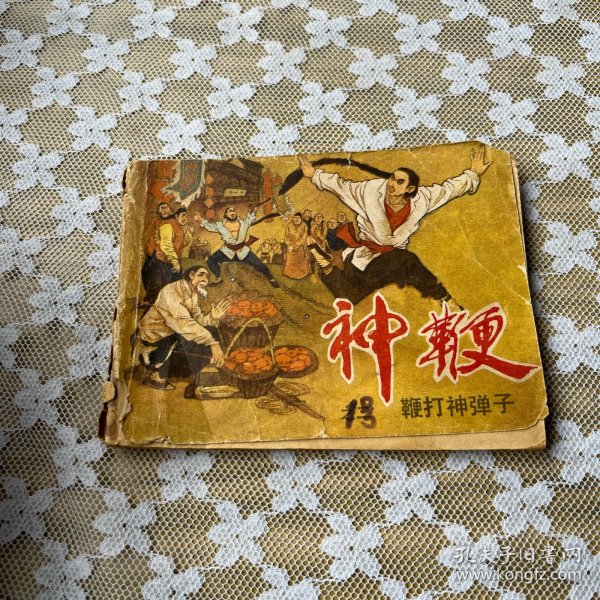 神鞭
13
鞭打神弹子
孔夫子旧书网
www.kongfz.com